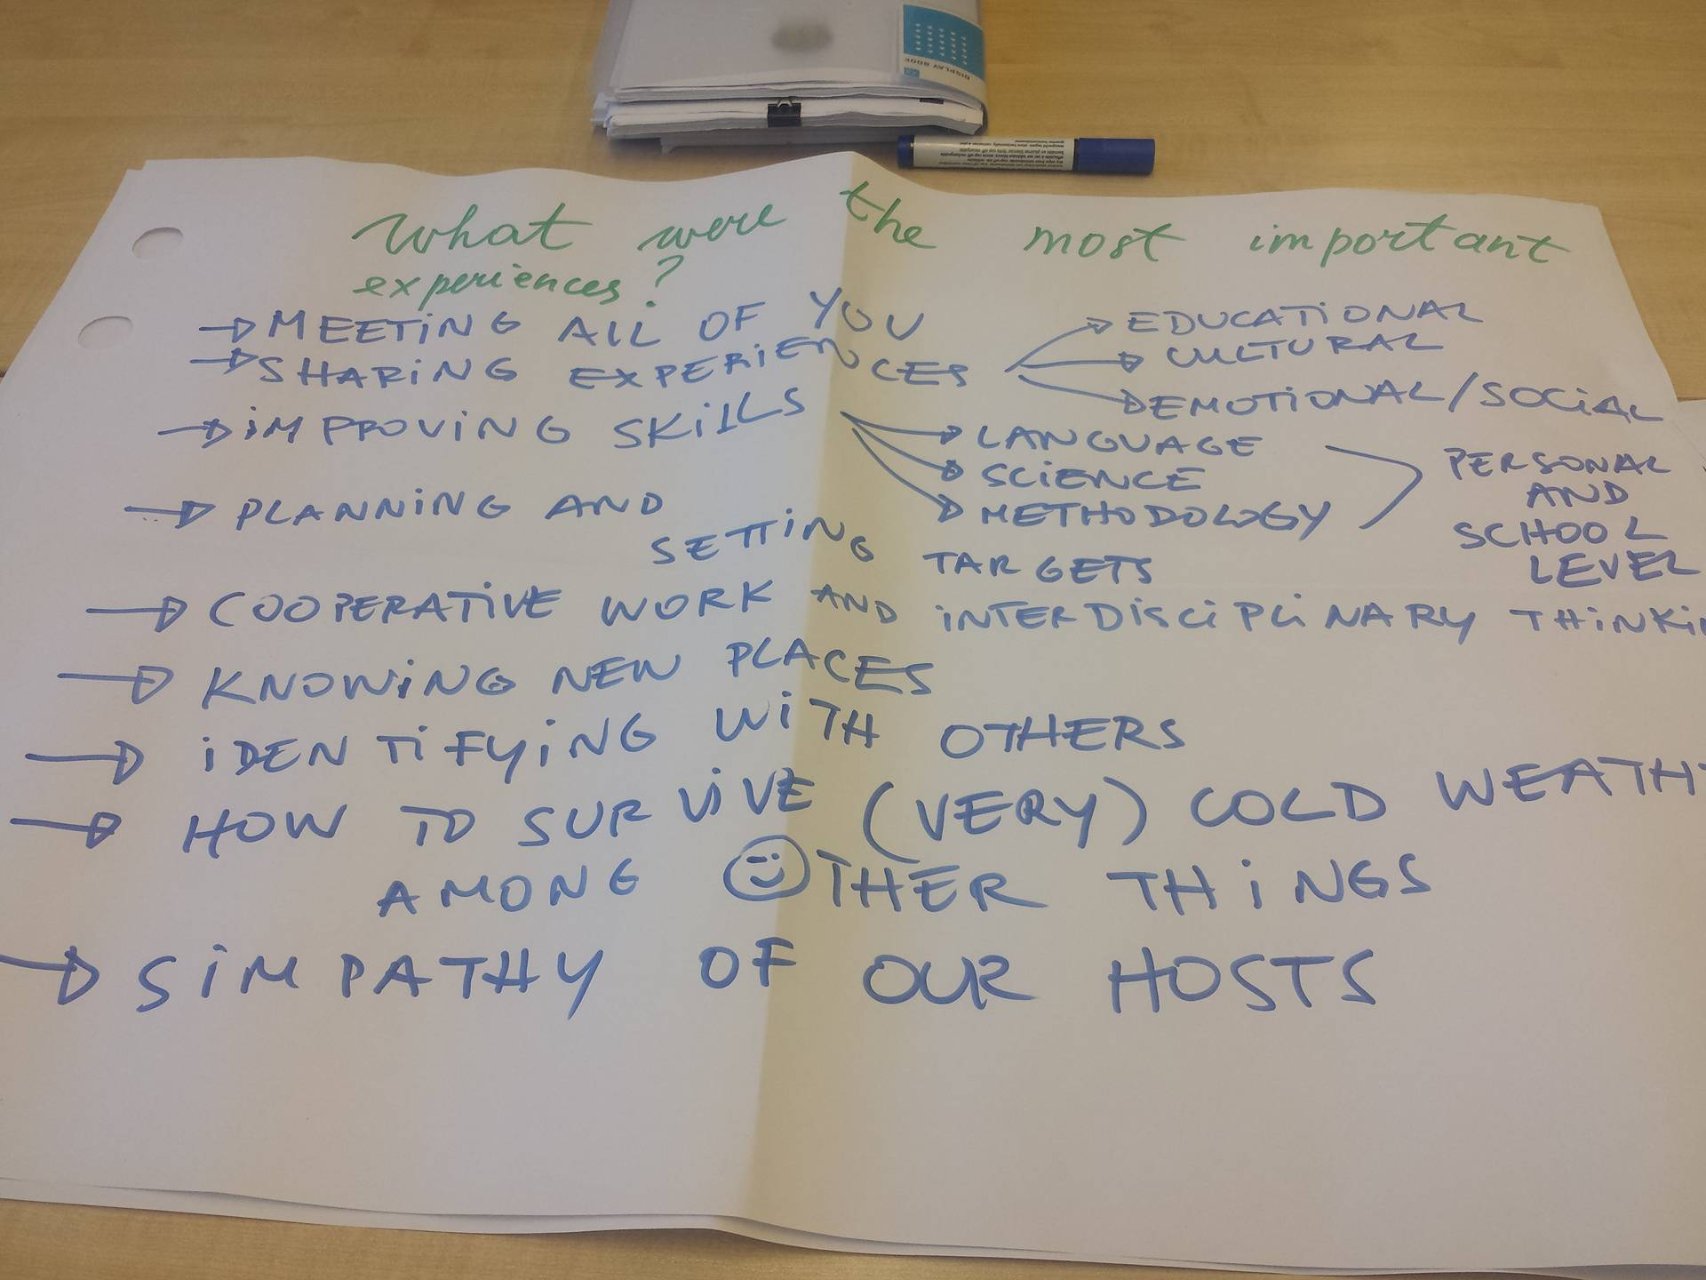 What were the most important
experiences?
→ MEETING ALL OF YOU
→ SHARING EXPERIENCES
→ EDUCATIONAL
→ CULTURAL
→ EMOTIONAL/SOCIAL
→ IMPROVING SKILLS
→ LANGUAGE
→ SCIENCE
→ METHODOLOGY
PERSONAL
AND
SCHOOL
LEVEL
→ PLANNING AND
SETTING TARGETS
→ COOPERATIVE WORK AND INTERDISCIPLINARY THINKI
→ KNOWING NEW PLACES
→ IDENTIFYING WITH OTHERS
→ HOW TO SURVIVE (VERY) COLD WEATH
AMONG OTHER THINGS
→ SIMPATHY OF OUR HOSTS
DISPLAY BOOK